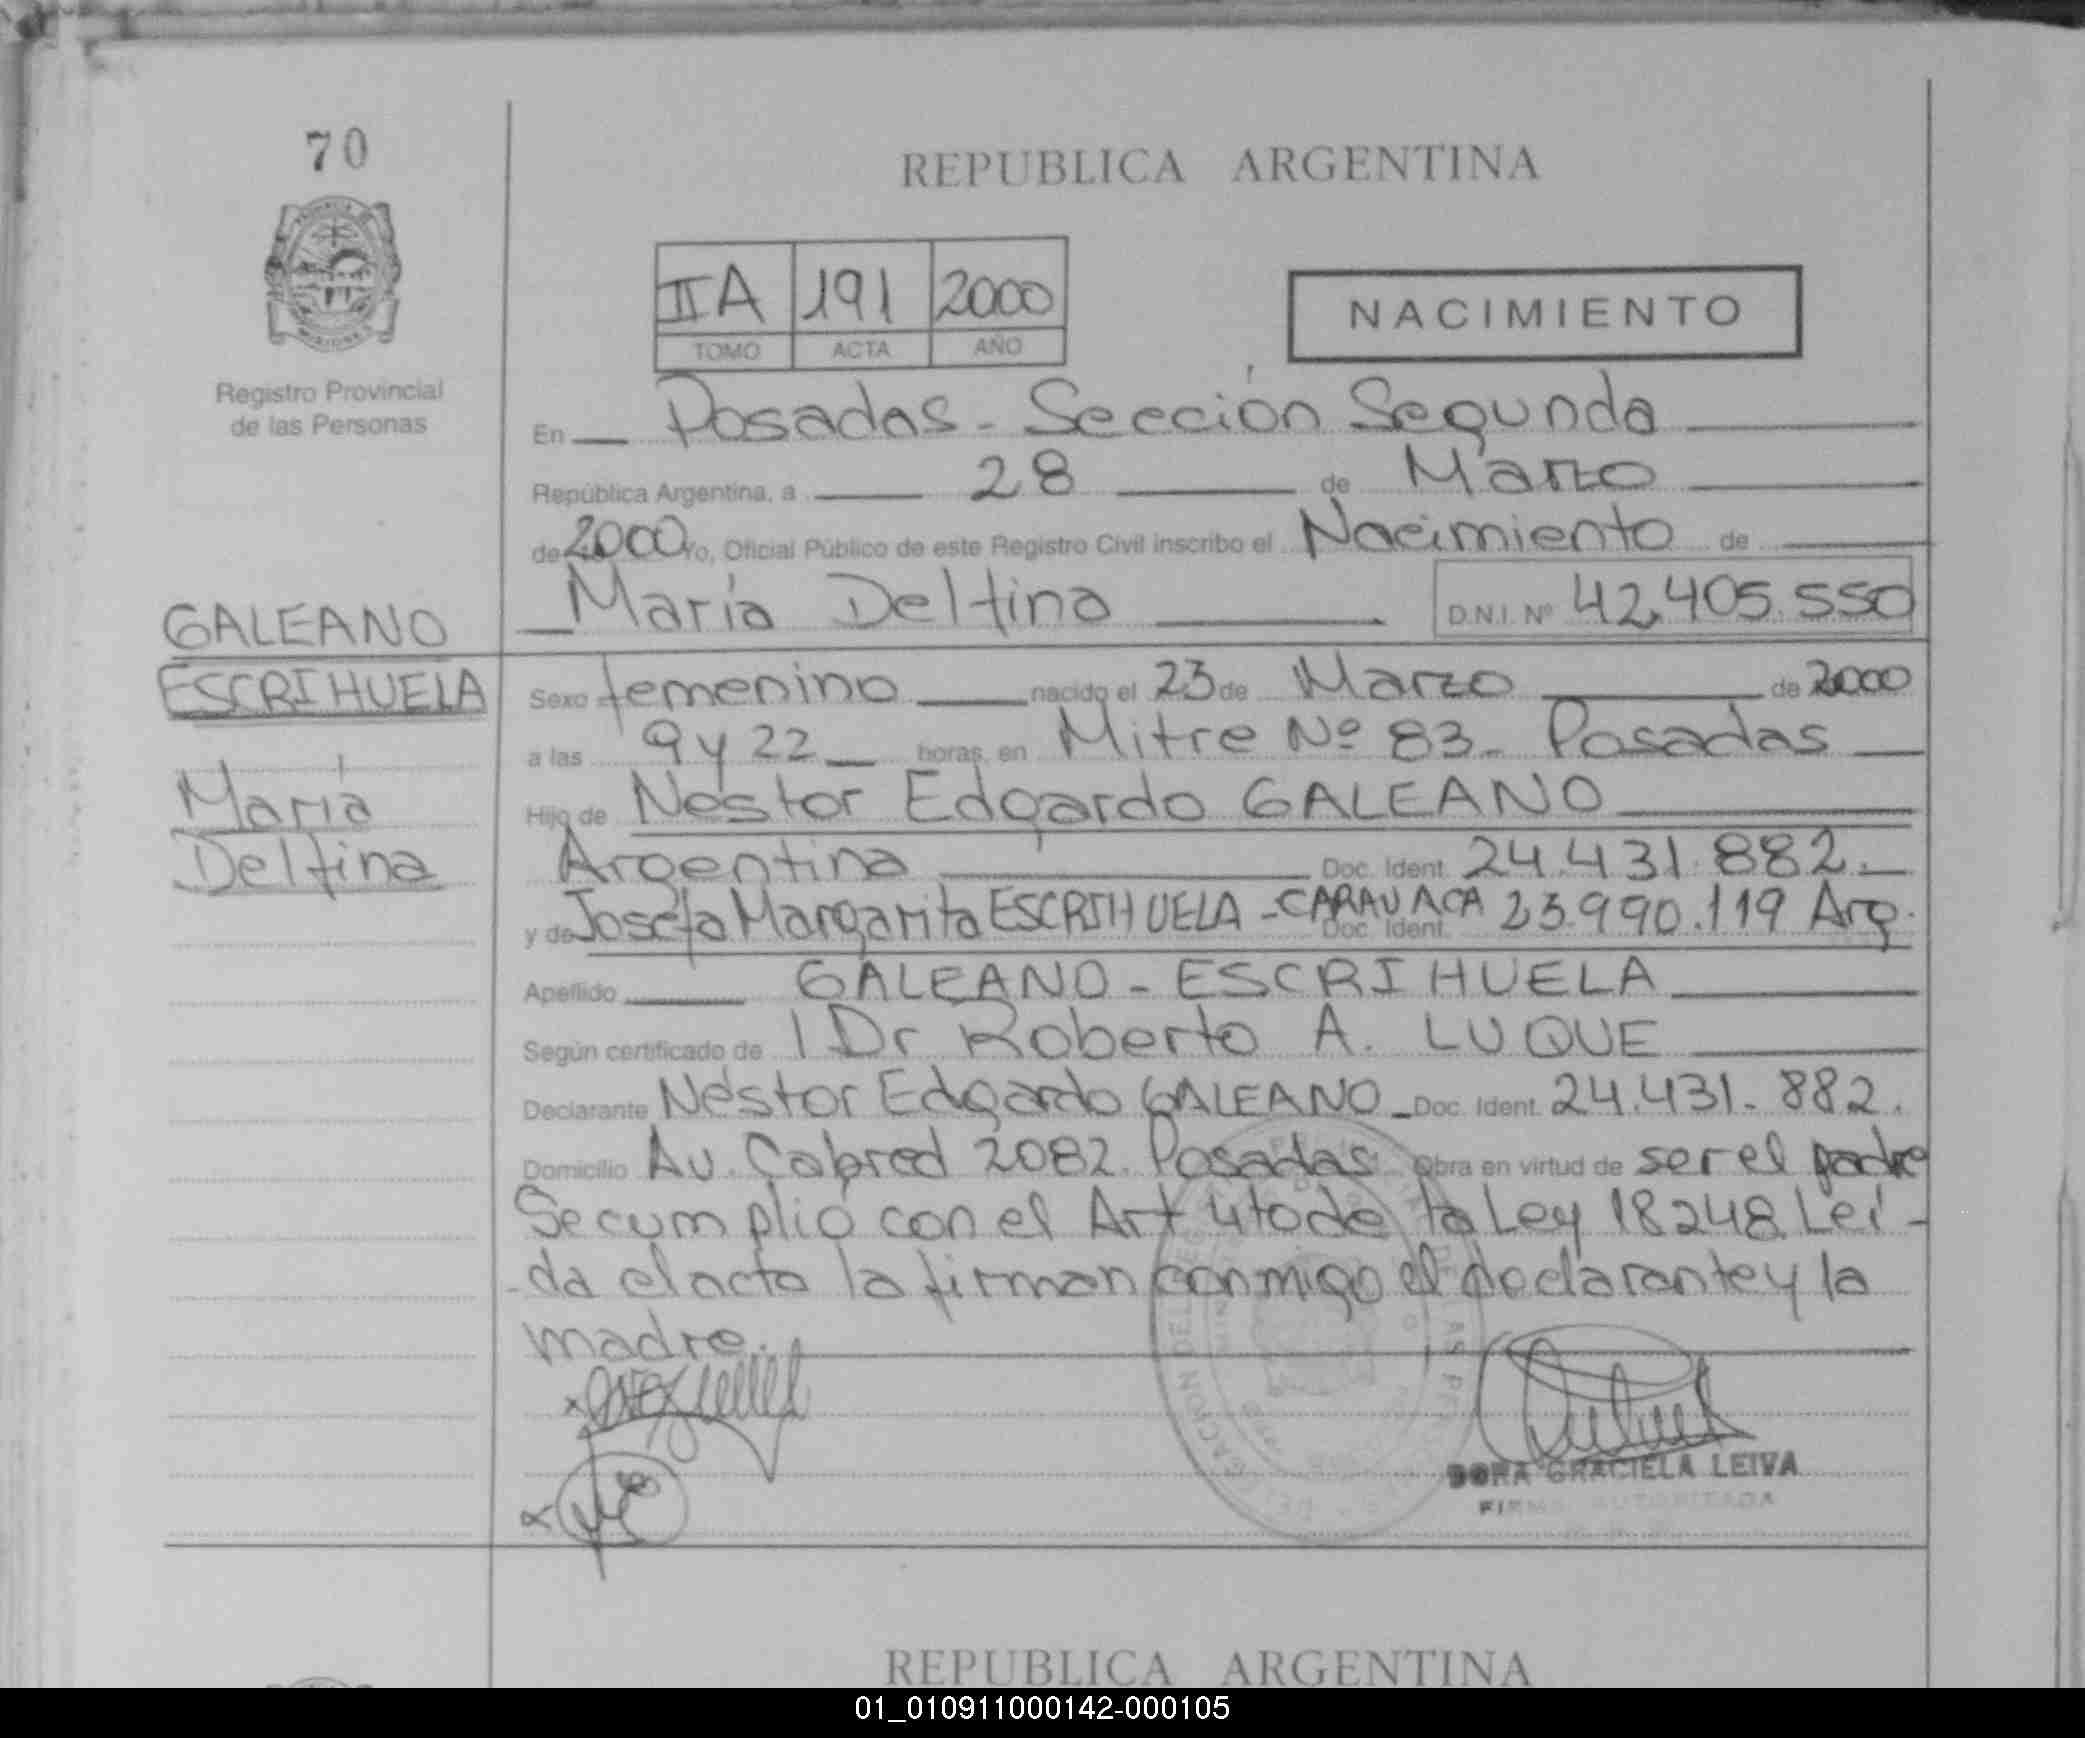 70
REPUBLICA ARGENTINA
IIA 191 2000
TOMO ACTA AÑO
NACIMIENTO
Registro Provincial
de las Personas
En Posadas - Sección Segunda
República Argentina, a 28 de Marzo
de 2000 Yo, Oficial Público de este Registro Civil inscribo el Nacimiento de
María Delfina D.N.I. Nº 42.405.550
GALEANO
ESCRIHUELA
María
Delfina
Sexo femenino nacido el 23 de Marzo de 2000
a las 9 y 22 horas, en Mitre Nº 83 - Posadas
Hijo de Néstor Edgardo GALEANO
Argentina Doc. Ident. 24.431.882.-
y de Josefa Margarita ESCRIHUELA - CARAVACA Doc. Ident. 23.990.119 Arg.
Apellido GALEANO - ESCRIHUELA
Según certificado de Dr Roberto A. LUQUE
Declarante Néstor Edgardo GALEANO - Doc. Ident. 24.431.882.
Domicilio Av. Cabred 2082. Posadas Obra en virtud de ser el padre
Se cumplió con el Art 4to de la Ley 18248. Leí-
-da el acta la firman conmigo el declarante y la
madre.
DORA GRACIELA LEIVA
FIRMA AUTORIZADA
REPUBLICA ARGENTINA
01_010911000142-000105